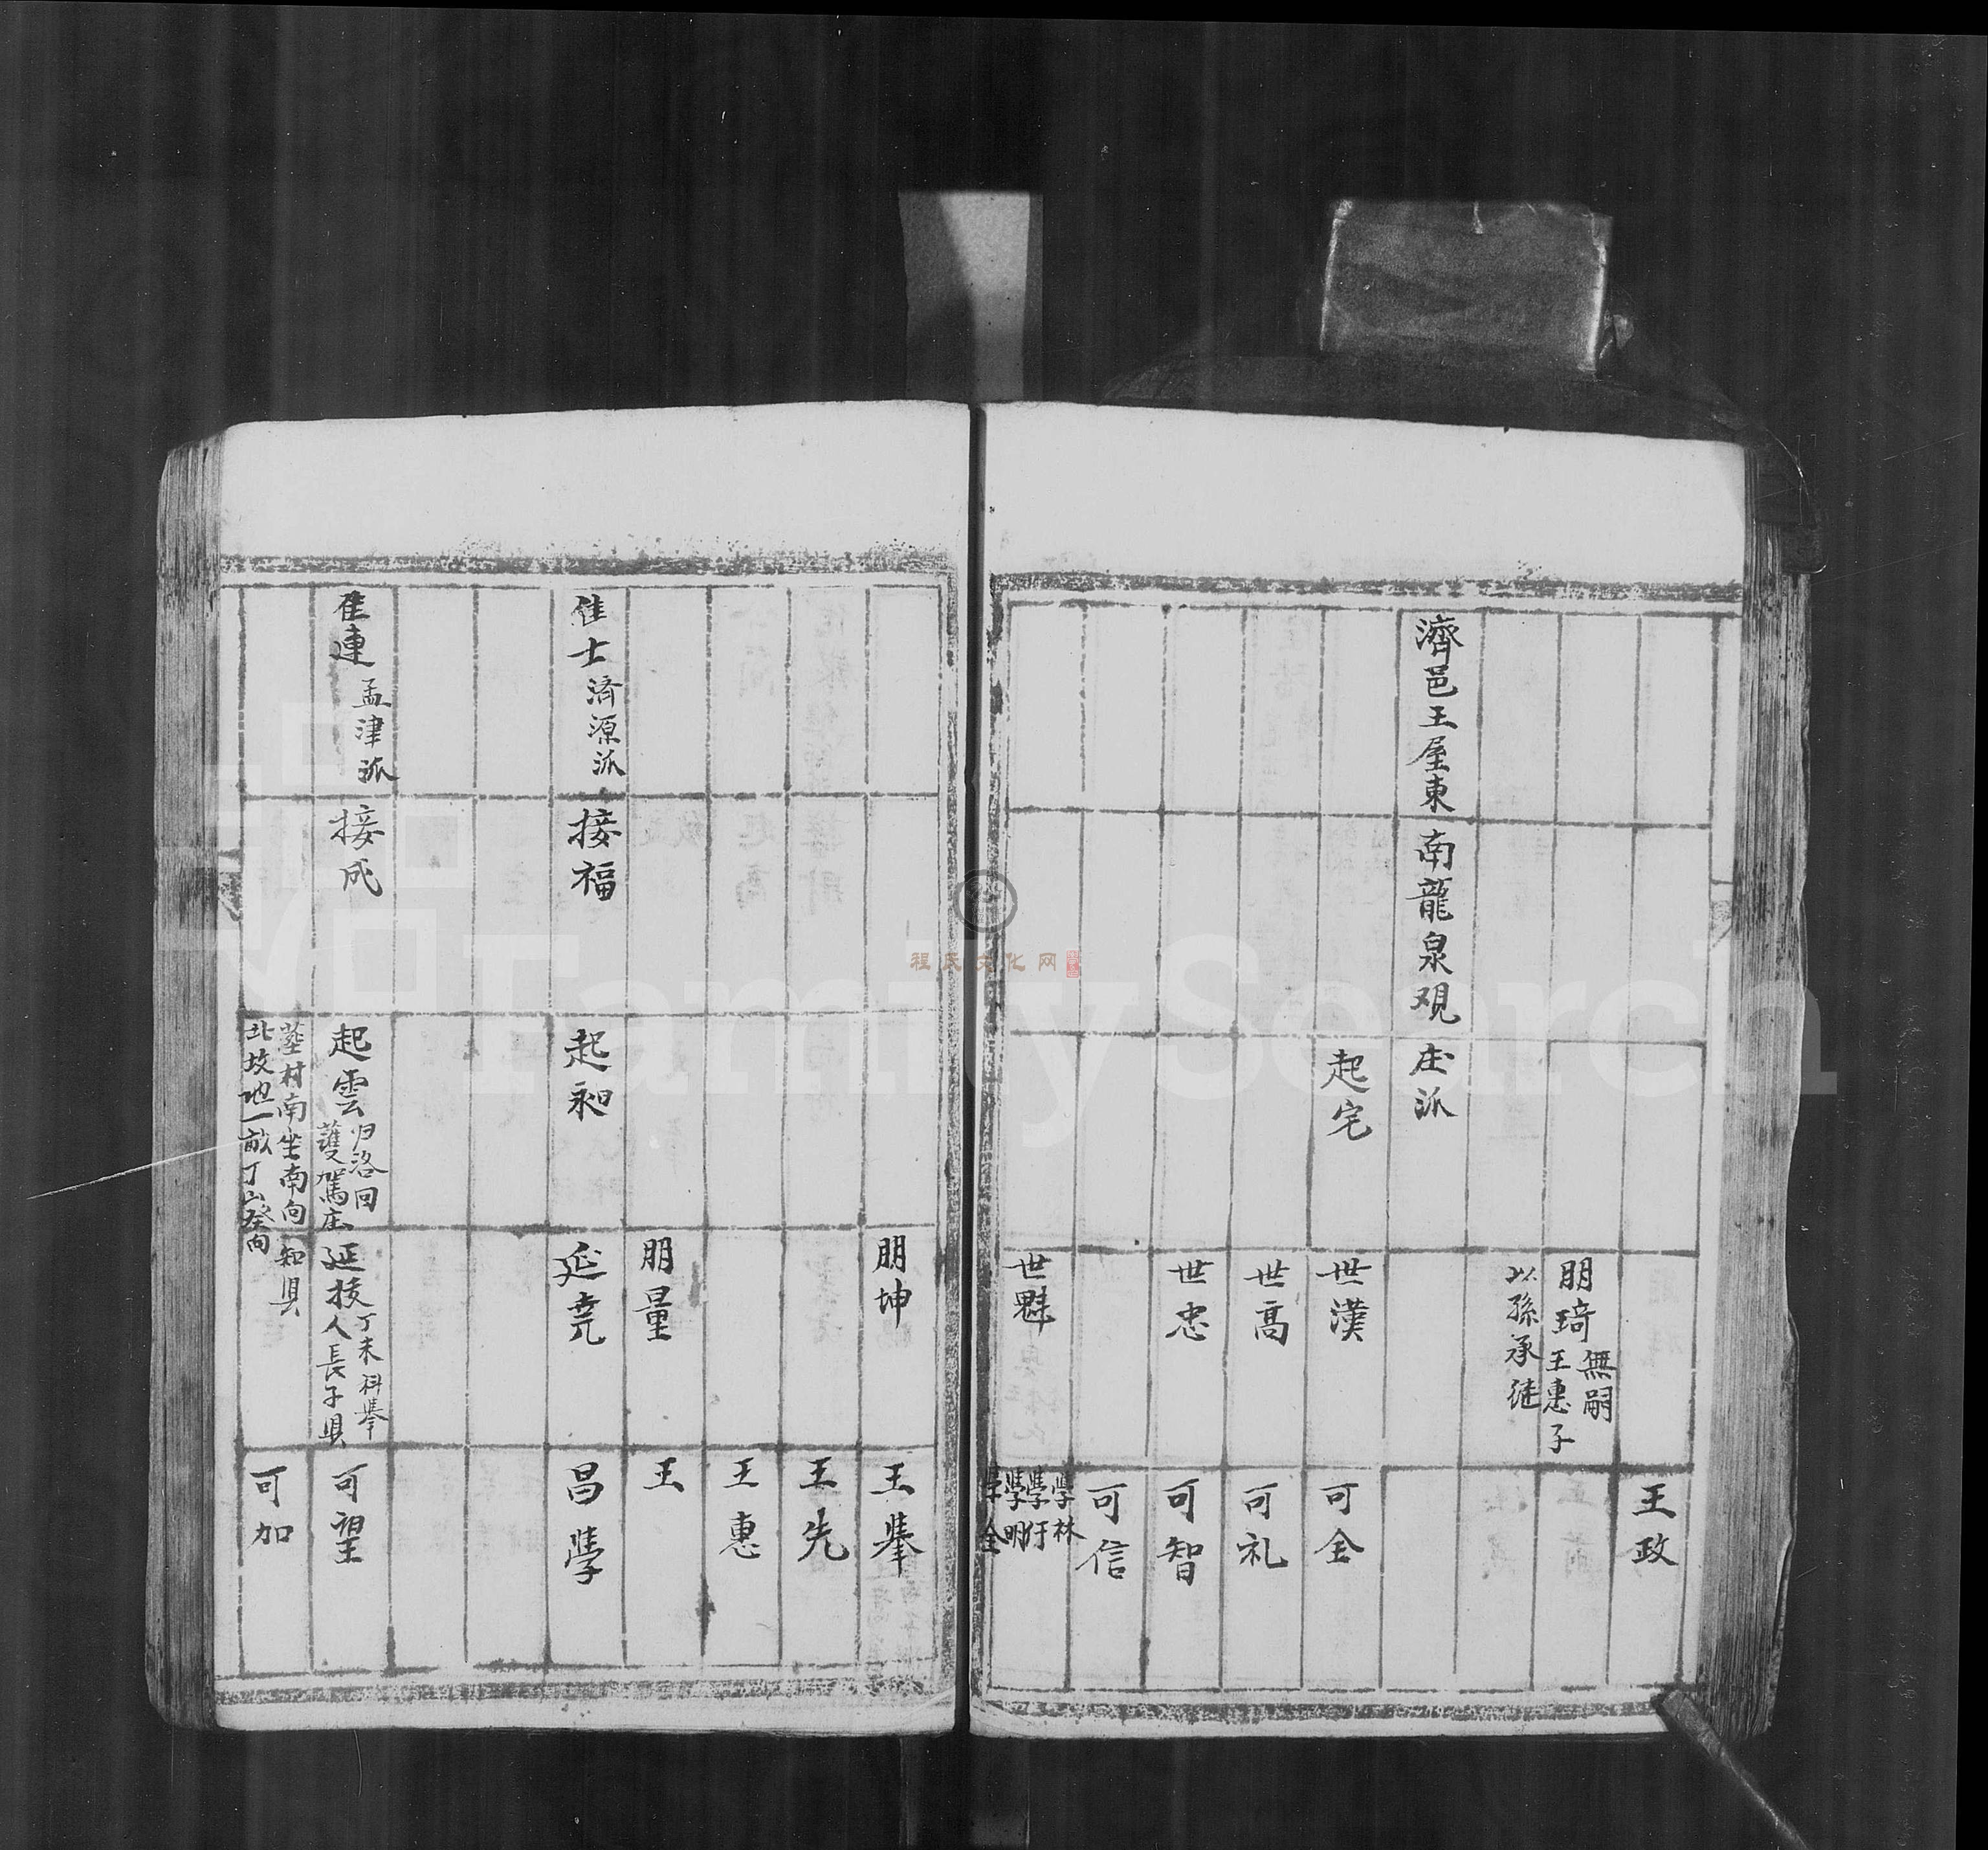 王政
朋琦 無嗣
王惠子
以孫承継
濟邑王屋東南龍泉观庄派
起宅
世漢
可全
世高
可礼
世忠
可智
可信
世魁
學林
學仔
學明
學全
朋坤
王舉
王先
王惠
朋量
王
隹士 済源派
接福
起昶
延尭
昌學
隹連 孟津派
接成
起雲 归洛回
護駕庄
延接 丁未科舉
人長子具
可望
塟村南坐南向 知具
北坟地一畝丁山癸向
可加
程氏文化网
FamilySearch